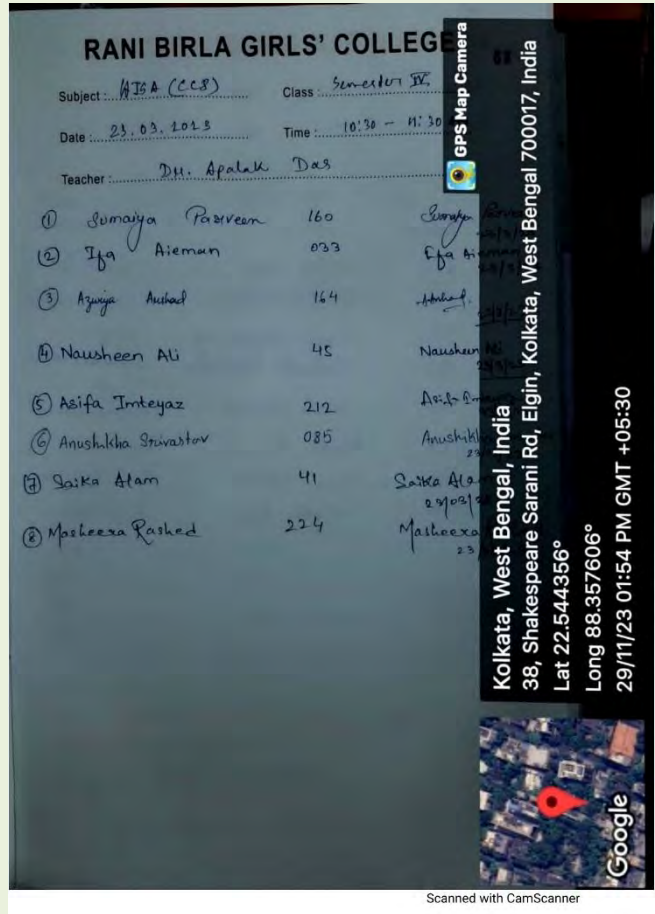 RANI BIRLA GIRLS' COLLEGE
Subject : HISA (CC8) Class : Semester IV
Date : 23.03.2023 Time : 10:30 - 11:30
Teacher : Dr. Apalak Das
① Sumaiya Parveen 160 Sumaiya
② Ifa Aieman 033 Efa Aieman
③ Azwiya Arshad 164
④ Nausheen Ali 45 Nausheen Ali
⑤ Asifa Imteyaz 212
⑥ Anushikha Srivastov 085 Anushikh
⑦ Saika Alam 41 Saika Ala
23/03/2
⑧ Masheera Rashed 224 Masheera
23
GPS Map Camera
Kolkata, West Bengal, India
38, Shakespeare Sarani Rd, Elgin, Kolkata, West Bengal 700017, India
Lat 22.544356°
Long 88.357606°
29/11/23 01:54 PM GMT +05:30
Google
Scanned with CamScanner